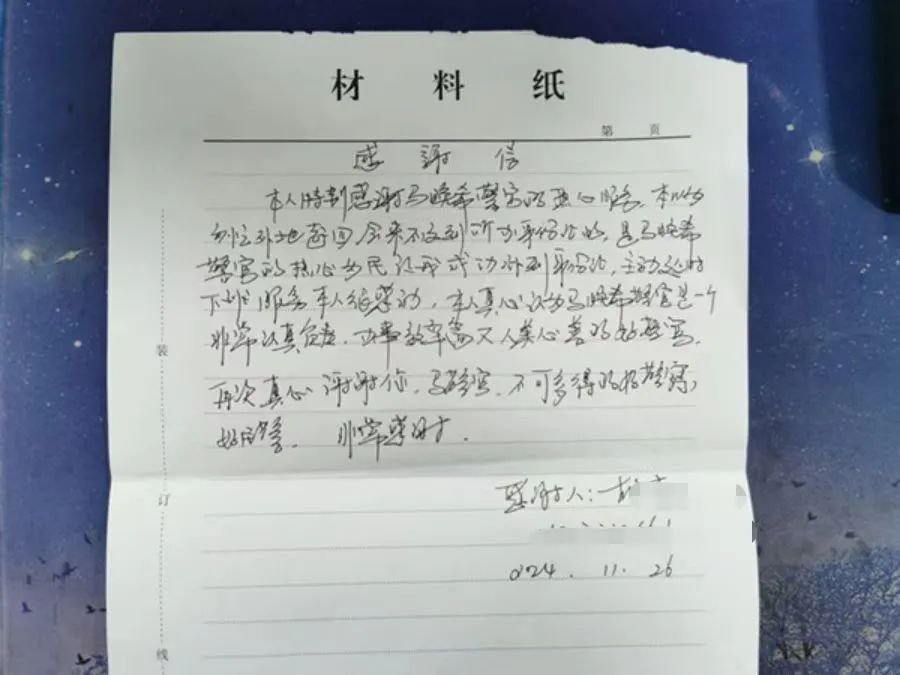 材 料 纸
第 页
感 谢 信
本人特别感谢马晓希警官的热心服务。本人
匆忙外地赶回余来不及到所办身份证的,是马晓希
警官的热心为民让我成功办到身份证,主动延时
下班服务本人很感动,本人真心认为马晓希警官是一个
非常认真负责,办事效率高又人美心善的好警官,
再次真心谢谢你,马警官,不可多得的好警官,
好民警。非常感谢。
感谢人:
2024.11.26
装
订
线